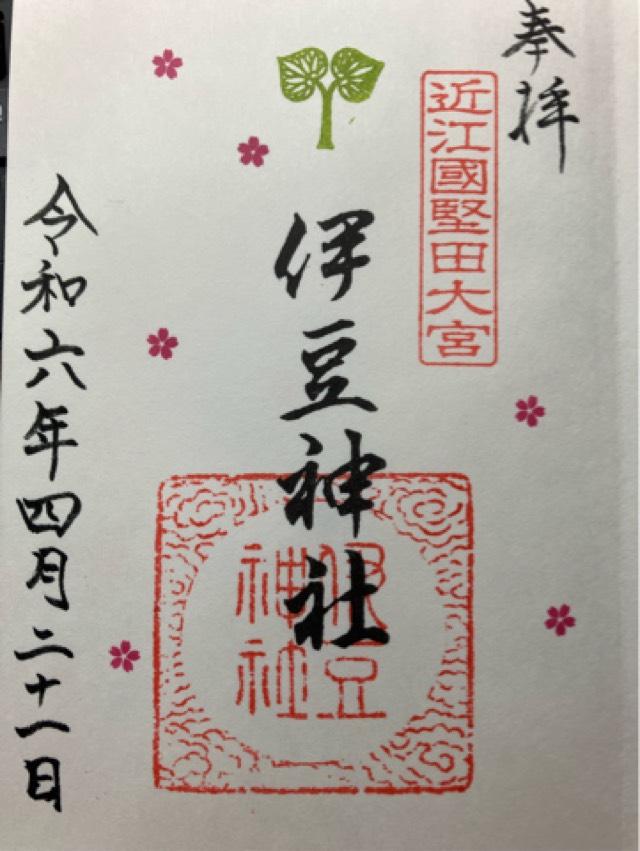 奉拝
近江國堅田大宮
伊豆神社
伊豆神社
令和六年四月二十一日